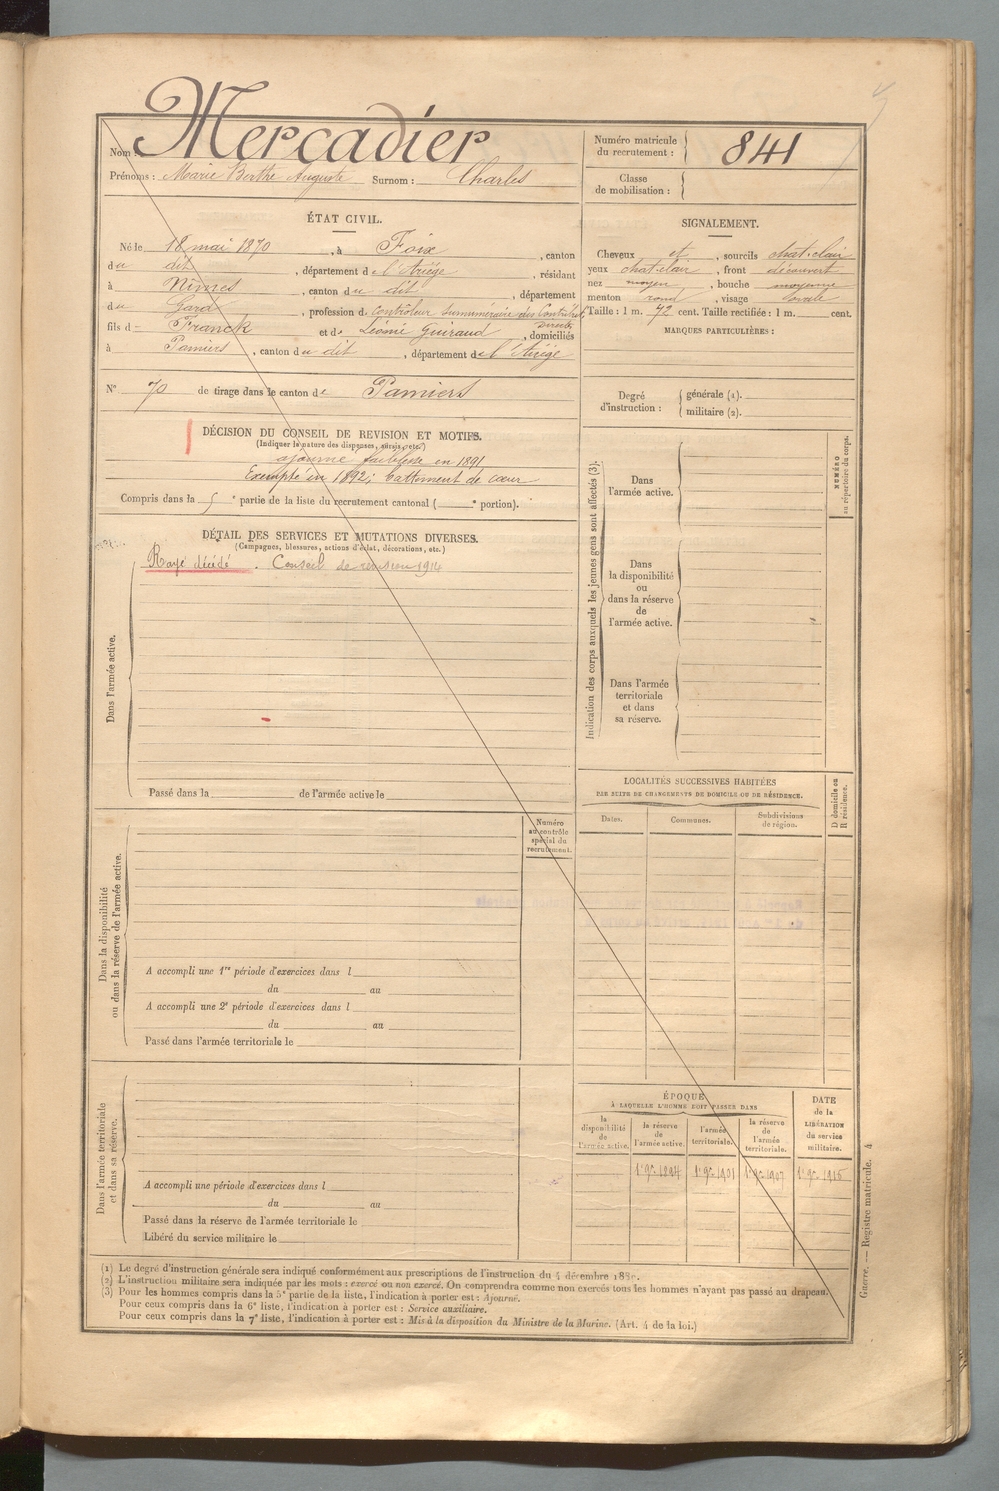 Nom : Mercadier
Prénoms : Marie Berthe Auguste Surnom : Charles
Numéro matricule
du recrutement : 841
Classe
de mobilisation :
ÉTAT CIVIL.
Né le 18 mai 1870, à Foix, canton
du dit, département de l'Ariège, résidant
à Nîmes, canton du dit, département
du Gard, profession de contrôleur surnuméraire des Contribut.
Directes
fils de Franck et de Léonie Guiraud, domiciliés
à Pamiers, canton du dit, département de l'Ariège
N° 70 de tirage dans le canton de Pamiers
DÉCISION DU CONSEIL DE REVISION ET MOTIFS.
(Indiquer la nature des dispenses, sursis, etc.)
ajourné faiblesse en 1891
Exempté en 1892; battement de cœur
Compris dans la 5e partie de la liste du recrutement cantonal ( e portion).
DÉTAIL DES SERVICES ET MUTATIONS DIVERSES.
(Campagnes, blessures, actions d'éclat, décorations, etc.)
Rayé décédé. Conseil de révision 1914
Dans l'armée active.
Passé dans la de l'armée active le
Numéro
au contrôle
spécial du
recrutement.
Dans la disponibilité
ou dans la réserve de l'armée active.
A accompli une 1re période d'exercices dans l
du au
A accompli une 2e période d'exercices dans l
du au
Passé dans l'armée territoriale le
Dans l'armée territoriale
et dans sa réserve.
A accompli une période d'exercices dans l
du au
Passé dans la réserve de l'armée territoriale le
Libéré du service militaire le
SIGNALEMENT.
Cheveux et, sourcils chat-clair
yeux chat-clair, front découvert
nez moyen, bouche moyenne
menton rond, visage ovale
Taille : 1 m. 72 cent. Taille rectifiée : 1 m. cent.
MARQUES PARTICULIÈRES :
Degré
d'instruction :
générale (1).
militaire (2).
Indication des corps auxquels les jeunes gens sont affectés (3).
Dans
l'armée active.
Dans
la disponibilité
ou
dans la réserve
de
l'armée active.
Dans l'armée
territoriale
et dans
sa réserve.
NUMÉRO
au répertoire du corps.
LOCALITÉS SUCCESSIVES HABITÉES
PAR SUITE DE CHANGEMENTS DE DOMICILE OU DE RÉSIDENCE.
Dates.
Communes.
Subdivisions
de région.
D domicile ou
R résidence.
ÉPOQUE
À LAQUELLE L'HOMME DOIT PASSER DANS
la
disponibilité
de
l'armée active.
la réserve
de
l'armée active.
l'armée
territoriale.
la réserve
de
l'armée
territoriale.
DATE
de la
LIBÉRATION
du service
militaire.
1er 9bre 1894 1er 9bre 1901 1er 9bre 1907 1er 9bre 1916
(1) Le degré d'instruction générale sera indiqué conformément aux prescriptions de l'instruction du 4 décembre 1889.
(2) L'instruction militaire sera indiquée par les mots : exercé ou non exercé. On comprendra comme non exercés tous les hommes n'ayant pas passé au drapeau.
(3) Pour les hommes compris dans la 5e partie de la liste, l'indication à porter est : Ajourné.
Pour ceux compris dans la 6e liste, l'indication à porter est : Service auxiliaire.
Pour ceux compris dans la 7e liste, l'indication à porter est : Mis à la disposition du Ministre de la Marine. (Art. 4 de la loi.)
Guerre. — Registre matricule. 4